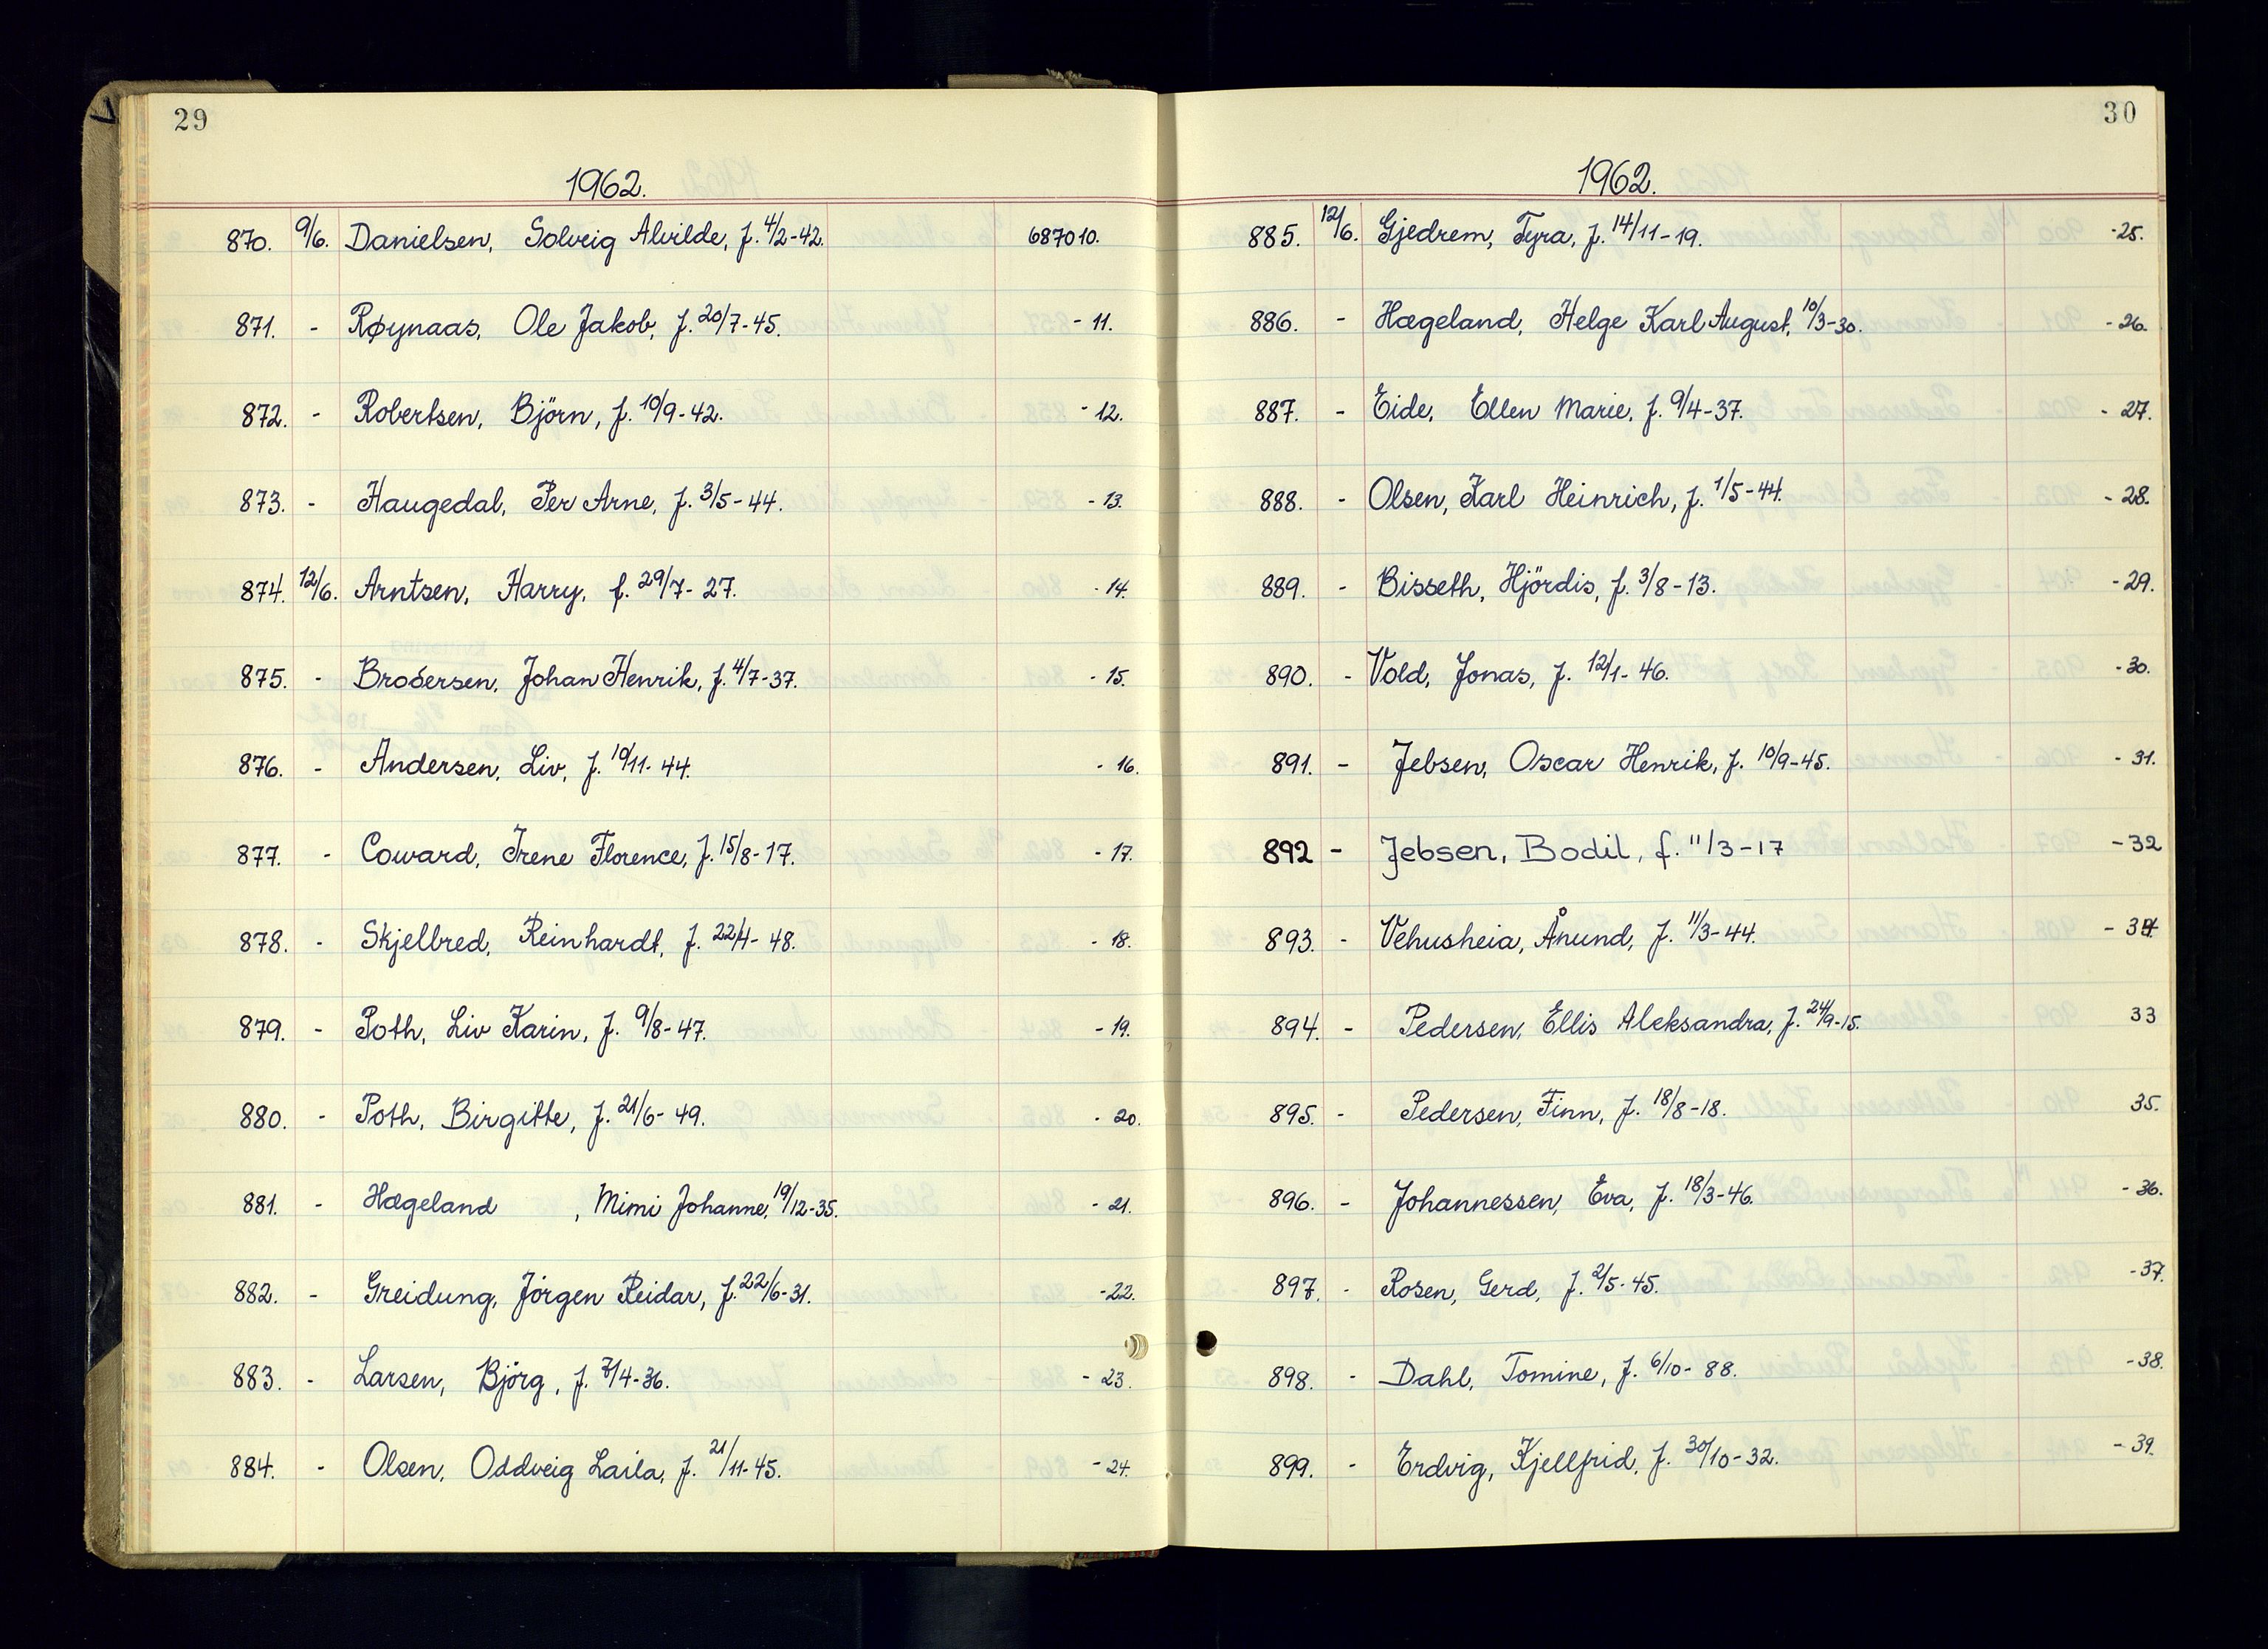 29
1962.
870. 9/6. Danielsen, Solveig Alvilde, f. 4/2-42. 687010.
871. - Røynaas, Ole Jakob, f. 20/7-45. - 11.
872. - Robertsen, Björn, f. 10/9-42. - 12.
873. - Haugedal, Per Arne, f. 3/5-44. - 13.
874. 12/6. Arntsen, Harry, f. 29/7-27. - 14.
875. - Brodersen, Johan Henrik, f. 4/7-37. - 15.
876. - Andersen, Liv, f. 19/11-44. - 16.
877. - Coward, Irene Florence, f. 15/8-17. - 17.
878. - Skjelbred, Reinhardt, f. 22/4-48. - 18.
879. - Poth, Liv Karin, f. 9/8-47. - 19.
880. - Poth, Birgitte, f. 21/6-49. - 20.
881. - Hægeland , Mimi Johanne, 19/12-35. - 21.
882. - Greidung, Jörgen Reidar, f. 22/6-31. - 22.
883. - Larsen, Björg, f. 7/4-36. - 23.
884. - Olsen, Oddveig Laila, f. 21/11-45. - 24.
30
1962.
885. 12/6. Gjedrem, Tyra, f. 14/11-19. - 25.
886. - Hægeland, Helge Karl August, 10/3-30. - 26.
887. - Eide, Ellen Marie, f. 9/4-37. - 27.
888. - Olsen, Karl Heinrich, f. 1/5-44. - 28.
889. - Bisseth, Hjördis, f. 3/8-13. - 29.
890. - Vold, Jonas, f. 12/1-46. - 30.
891. - Jebsen, Oscar Henrik, f. 10/9-45. - 31.
892 - Jebsen, Bodil, f. 11/3-17 - 32
893. - Vehusheia, Ånund, f. 11/3-44. - 34.
894. - Pedersen, Ellis Aleksandra, f. 24/9-15. 33
895. - Pedersen, Finn, f. 18/8-18. 35.
896. - Johannessen, Eva, f. 18/3-46. - 36.
897. - Rosen, Gerd, f. 2/5-45. - 37.
898. - Dahl, Tomine, f. 6/10-88. - 38.
899. - Erdvig, Kjellfrid, f. 30/10-32. - 39.